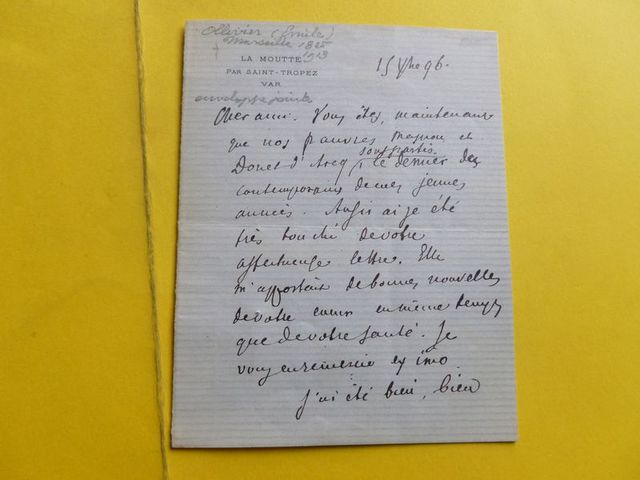 Ollivier (Emile)
Marseille 1825
† 1913
LA MOUTTE
PAR SAINT-TROPEZ
VAR
enveloppe jointe
15 96.
Cher ami. Vous êtes, maintenant
que nos pauvres Magnon et
Douet d'Arcq sont partis, le dernier des
contemporains de mes jeunes
années. Aussi ai je été
très touché de votre
affectueuse lettre. Elle
m'apportait de bonnes nouvelles
de votre cœur en même temps
que de votre santé. Je
vous en remercie ex imo
J'ai été bien, bien